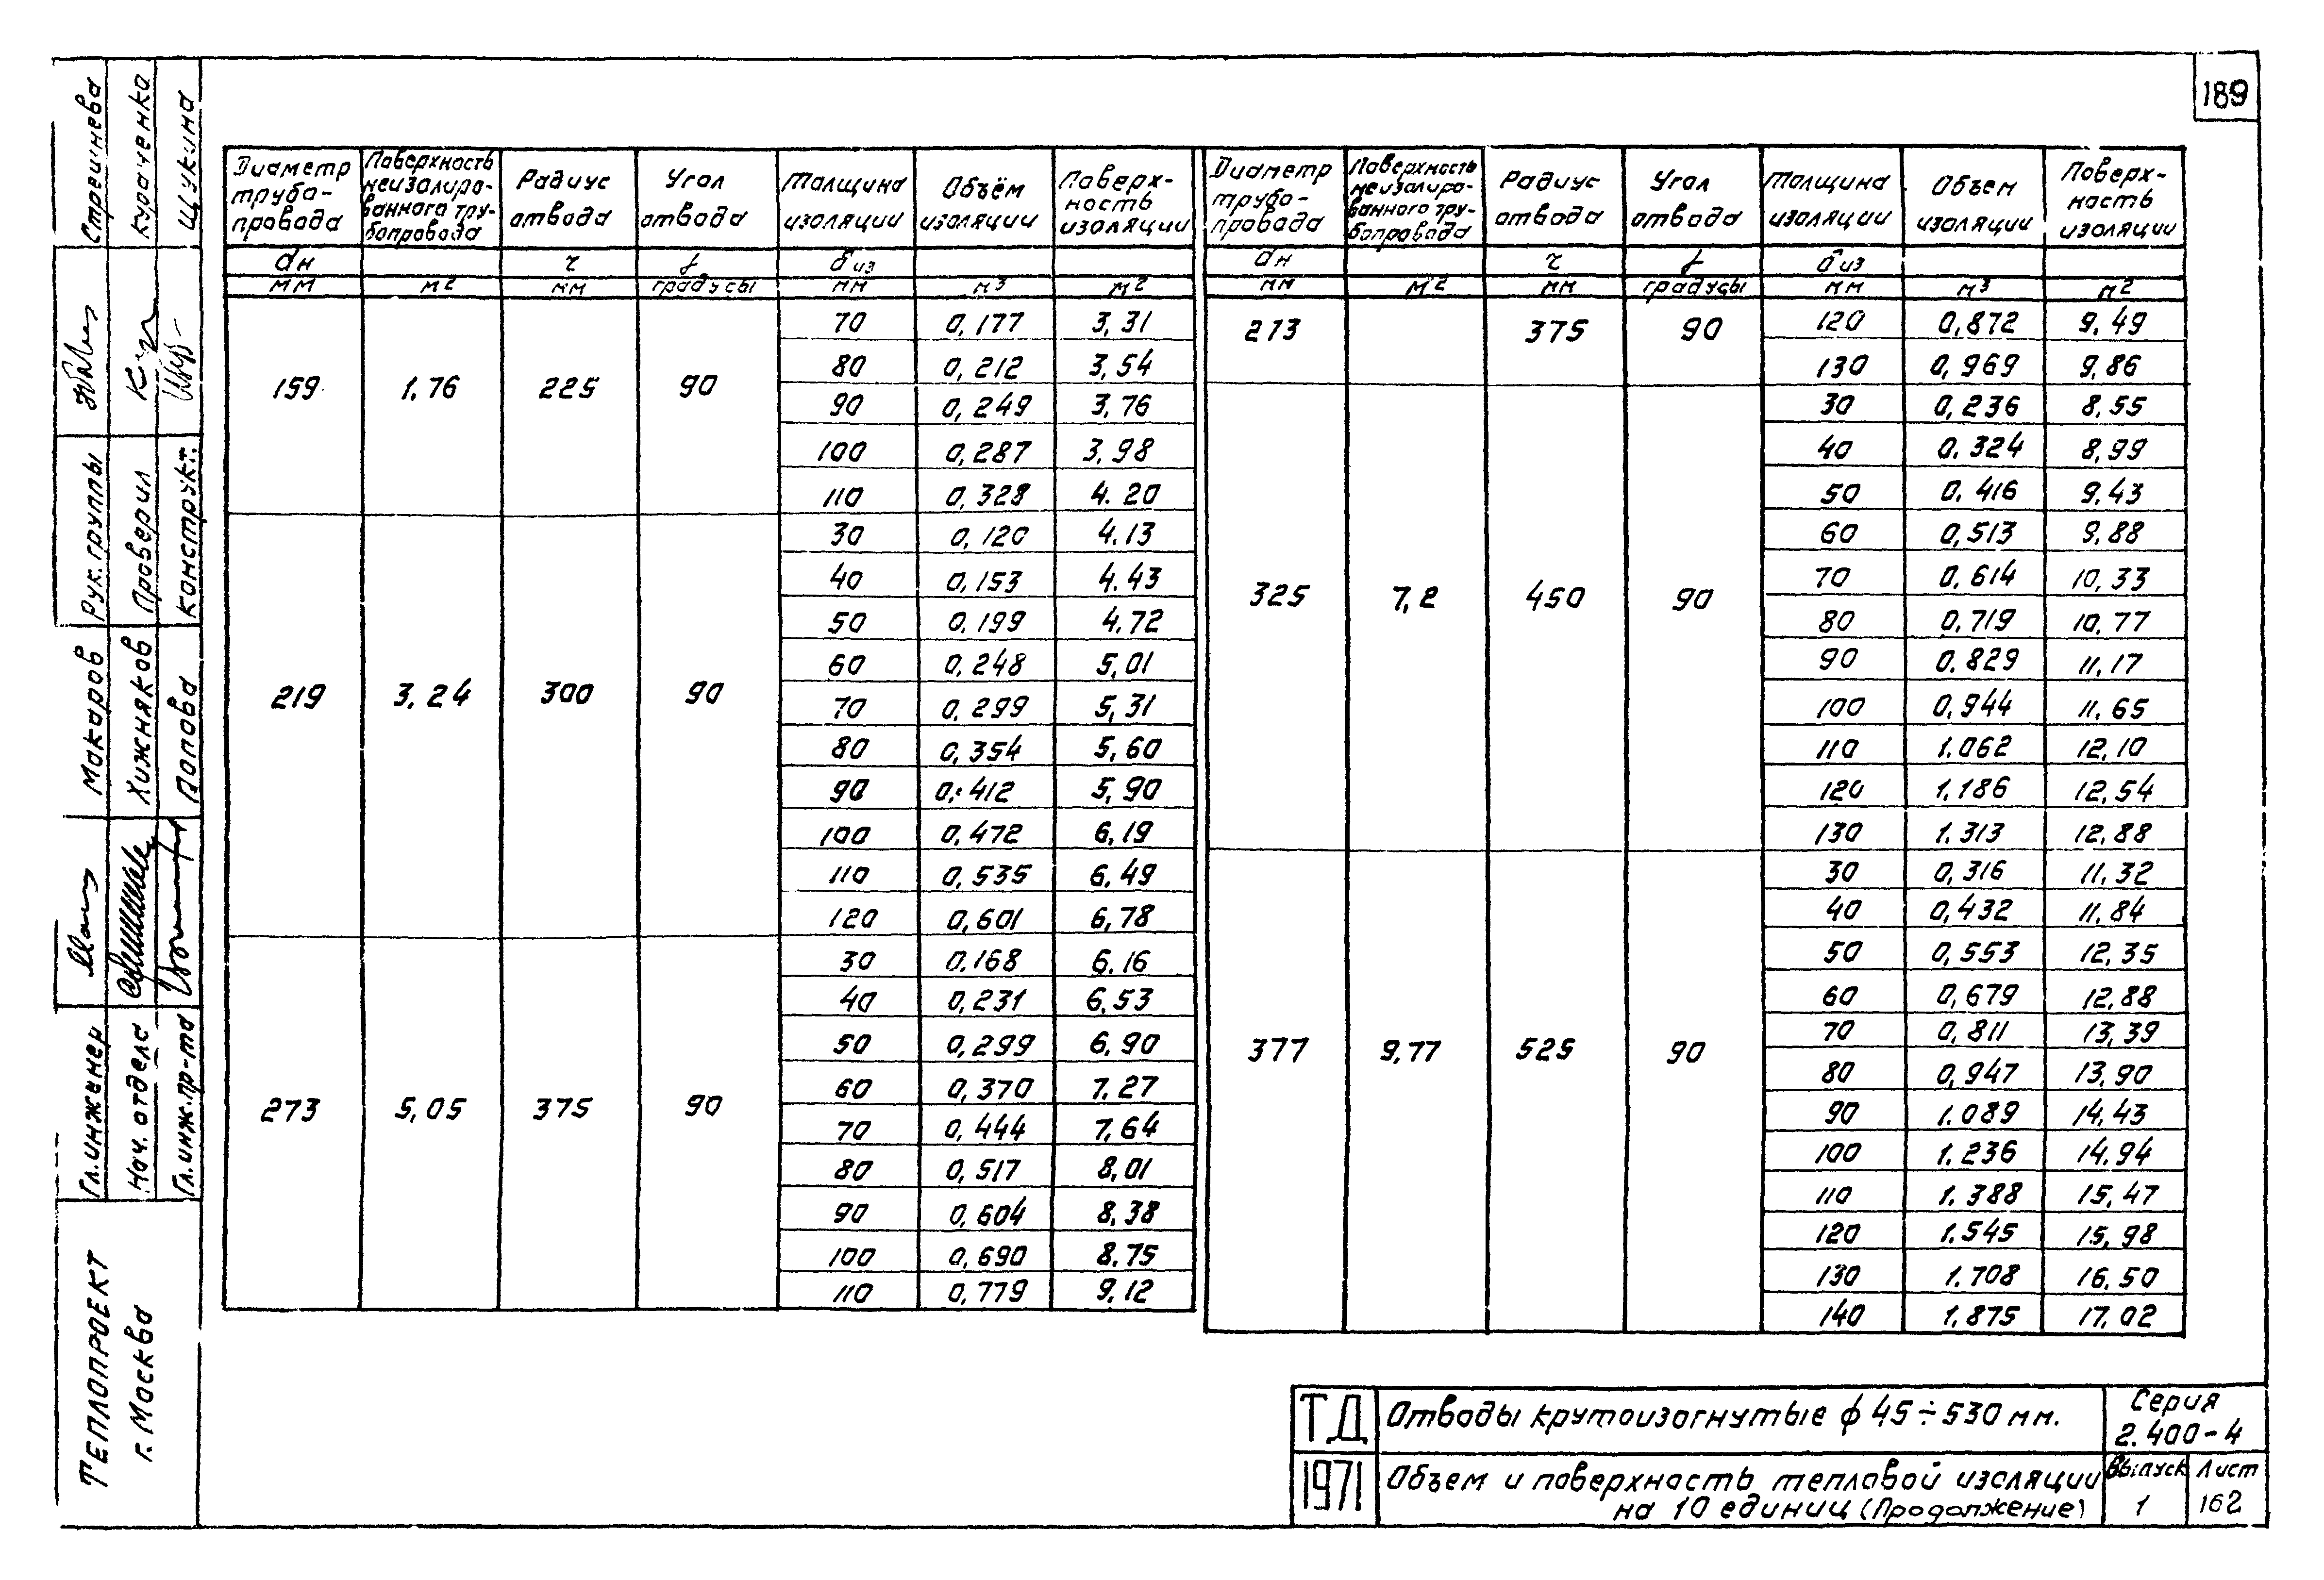 189
Диаметр трубо-провода | Поверхность неизолиро-ванного тру-бопровода | Радиус отвода | Угол отвода | Толщина изоляции | Объём изоляции | Поверх-ность изоляции
dн | | r | γ | δиз
мм | м2 | мм | градусы | мм | м3 | м2
159 | 1,76 | 225 | 90
70 0,177 3,31
80 0,212 3,54
90 0,249 3,76
100 0,287 3,98
110 0,328 4.20
219 | 3,24 | 300 | 90
30 0,120 4.13
40 0,153 4.43
50 0,199 4.72
60 0,248 5,01
70 0,299 5,31
80 0,354 5,60
90 0,412 5,90
100 0,472 6,19
110 0,535 6.49
120 0,601 6,78
273 | 5,05 | 375 | 90
30 0,168 6.16
40 0,231 6,53
50 0,299 6,90
60 0,370 7,27
70 0,444 7,64
80 0,517 8,01
90 0,604 8,38
100 0,690 8,75
110 0,779 9,12
Диаметр трубо-провода | Поверхность неизолиро-ванного тру-бопровода | Радиус отвода | Угол отвода | Толщина изоляции | Объем изоляции | Поверх-ность изоляции
dн | | r | γ | δиз
мм | м2 | мм | градусы | мм | м3 | м2
273 | 375 | 90
120 0,872 9,49
130 0,969 9,86
325 | 7,2 | 450 | 90
30 0,236 8,55
40 0.324 8,99
50 0.416 9.43
60 0,513 9,88
70 0.614 10,33
80 0,719 10,77
90 0.829 11,17
100 0,944 11,65
110 1.062 12,10
120 1.186 12,54
130 1.313 12,88
377 | 9,77 | 525 | 90
30 0,316 11,32
40 0,432 11,84
50 0,553 12,35
60 0,679 12,88
70 0,811 13,39
80 0,947 13,90
90 1.089 14,43
100 1.236 14.94
110 1.388 15,47
120 1.545 15,98
130 1.708 16,50
140 1.875 17,02
ТД
1971
Отводы крутоизогнутые ϕ 45÷530 мм.
Объем и поверхность тепловой изоляции
на 10 единиц (Продолжение)
Серия
2.400-4
Выпуск
1
Лист
162
ТЕПЛОПРОЕКТ
г. Москва
Гл. инженер Макаров Рук. группы Стрешнева
Нач. отдела Хижняков Проверил Кураченко
Гл. инж. пр-та Попова Конструкт. Щукина